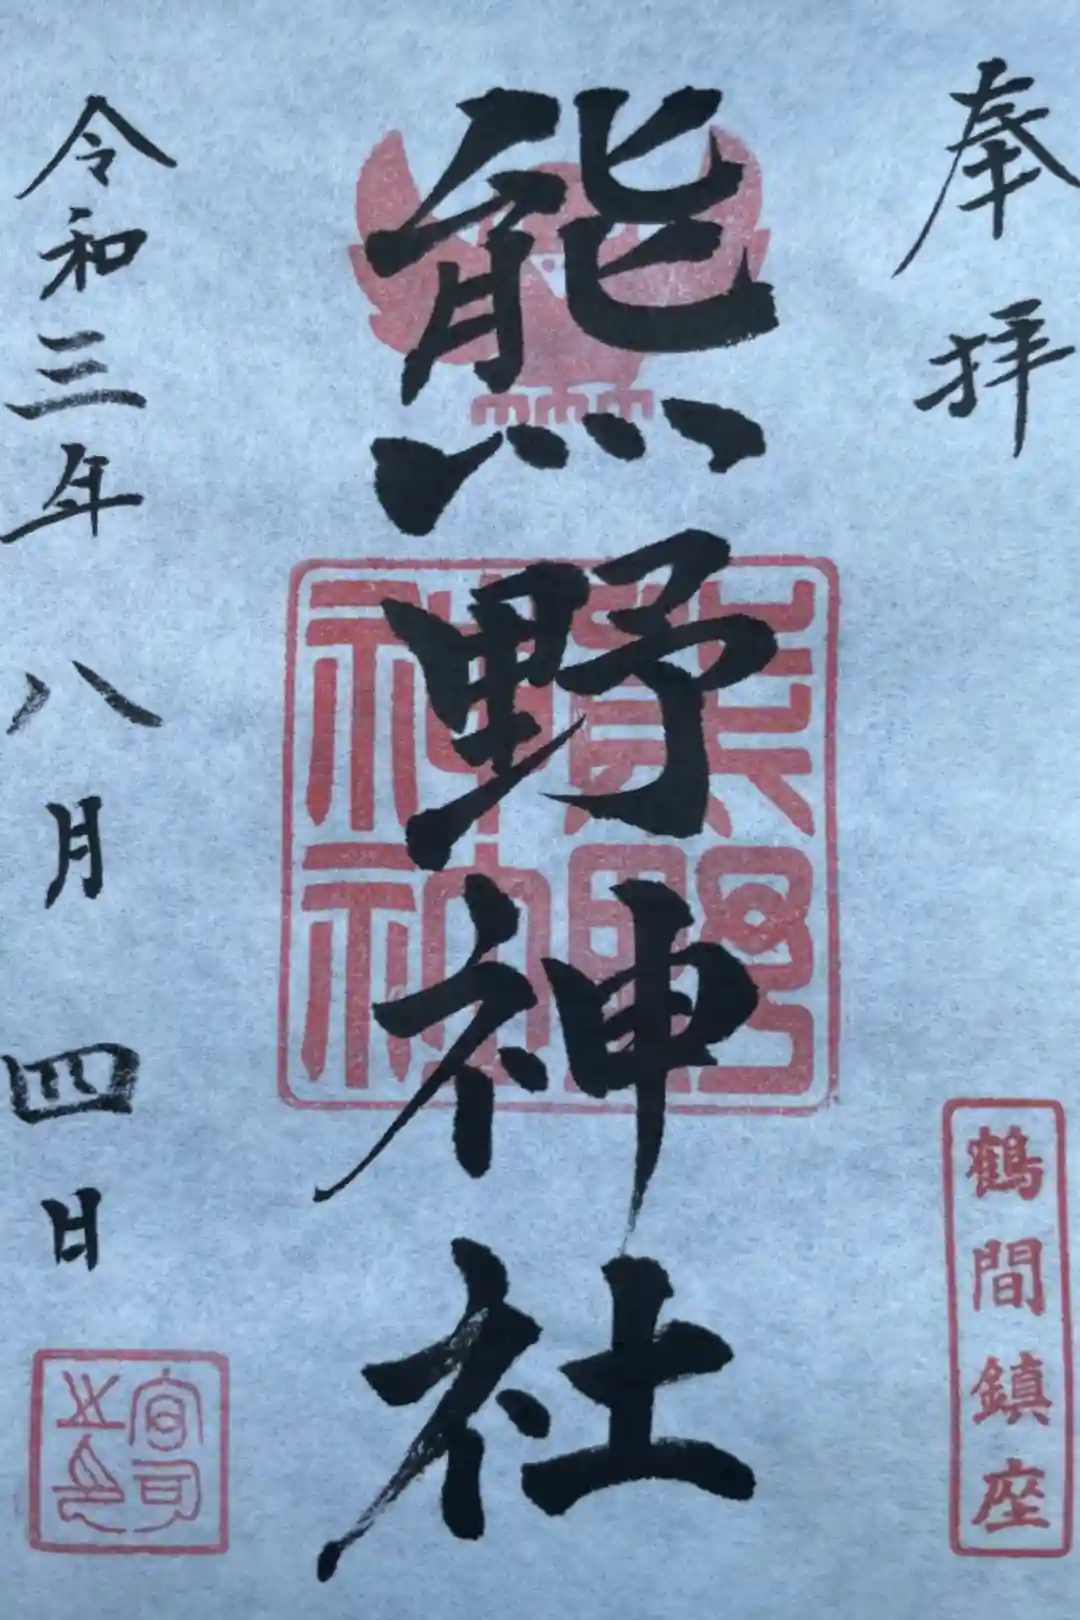 奉拝
鶴間鎮座
熊野神社
熊野神社
令和三年八月四日
宮司之印